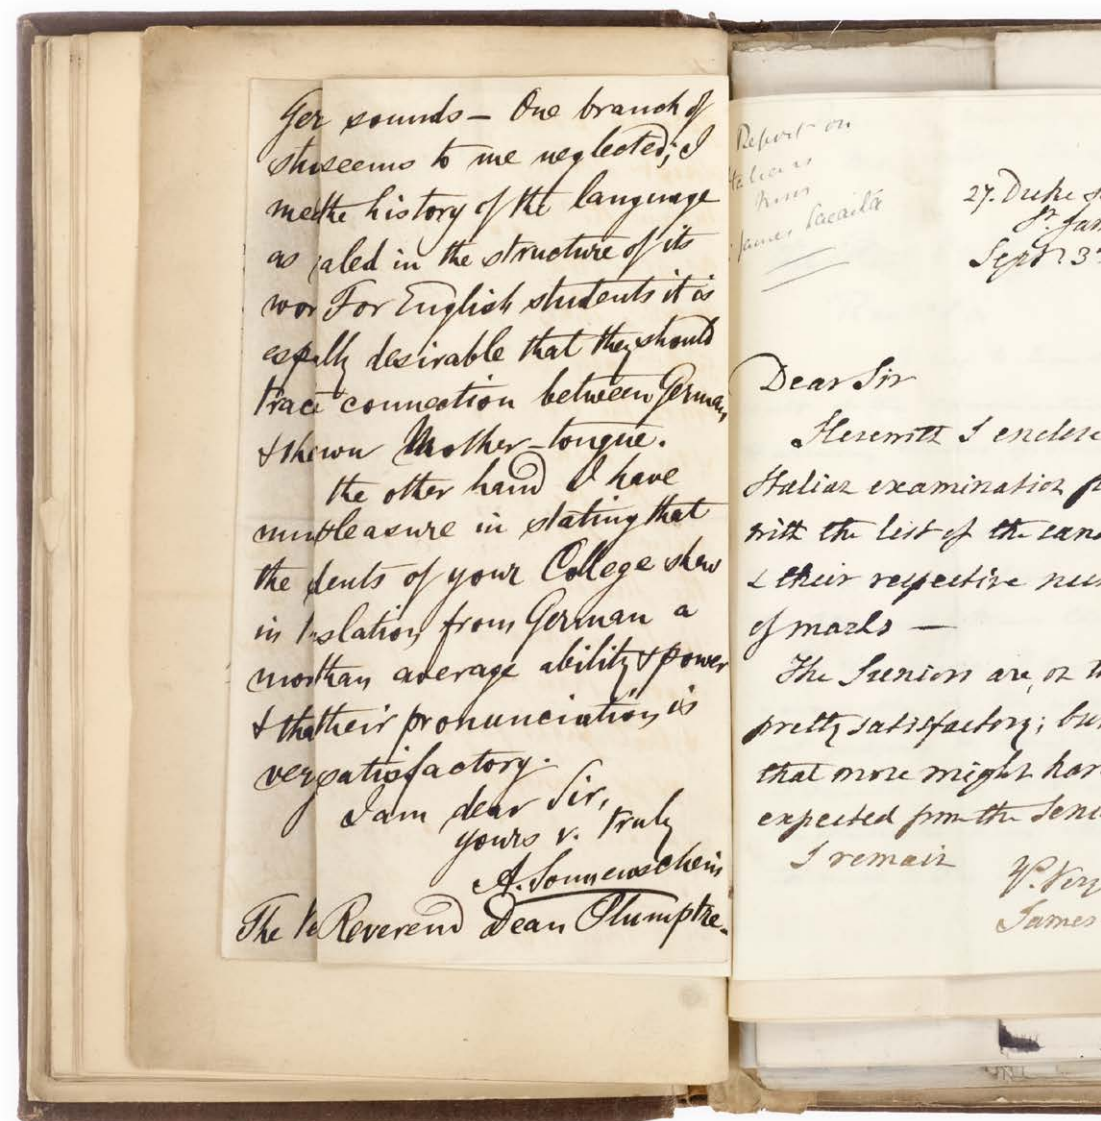 Ger sounds — One branch of
stu seems to me neglected; I
mea the history of the language
as aled in the structure of its
wor For English students it is
esp ally desirable that they should
trace connection between German
& the own Mother-tongue.
the other hand I have
mu pleasure in stating that
the dents of your College shew
in slation from German a
mor than average ability & power
& tha their pronunciation is
very satisfactory.
I am dear Sir,
yours v. truly
A. Sonnenschein
The Ve Reverend Dean Plumptre.
Report on
Italians
James Lacaita
27. Duke S
St. Jam
Sept 23
Dear Sir
Herewith I enclose
Italian examination p
with the list of the cand
& their respective num
of marks —
The Juniors are, on t
pretty satisfactory; but
that more might hav
expected from the Seni
I remain
Y. Very
James